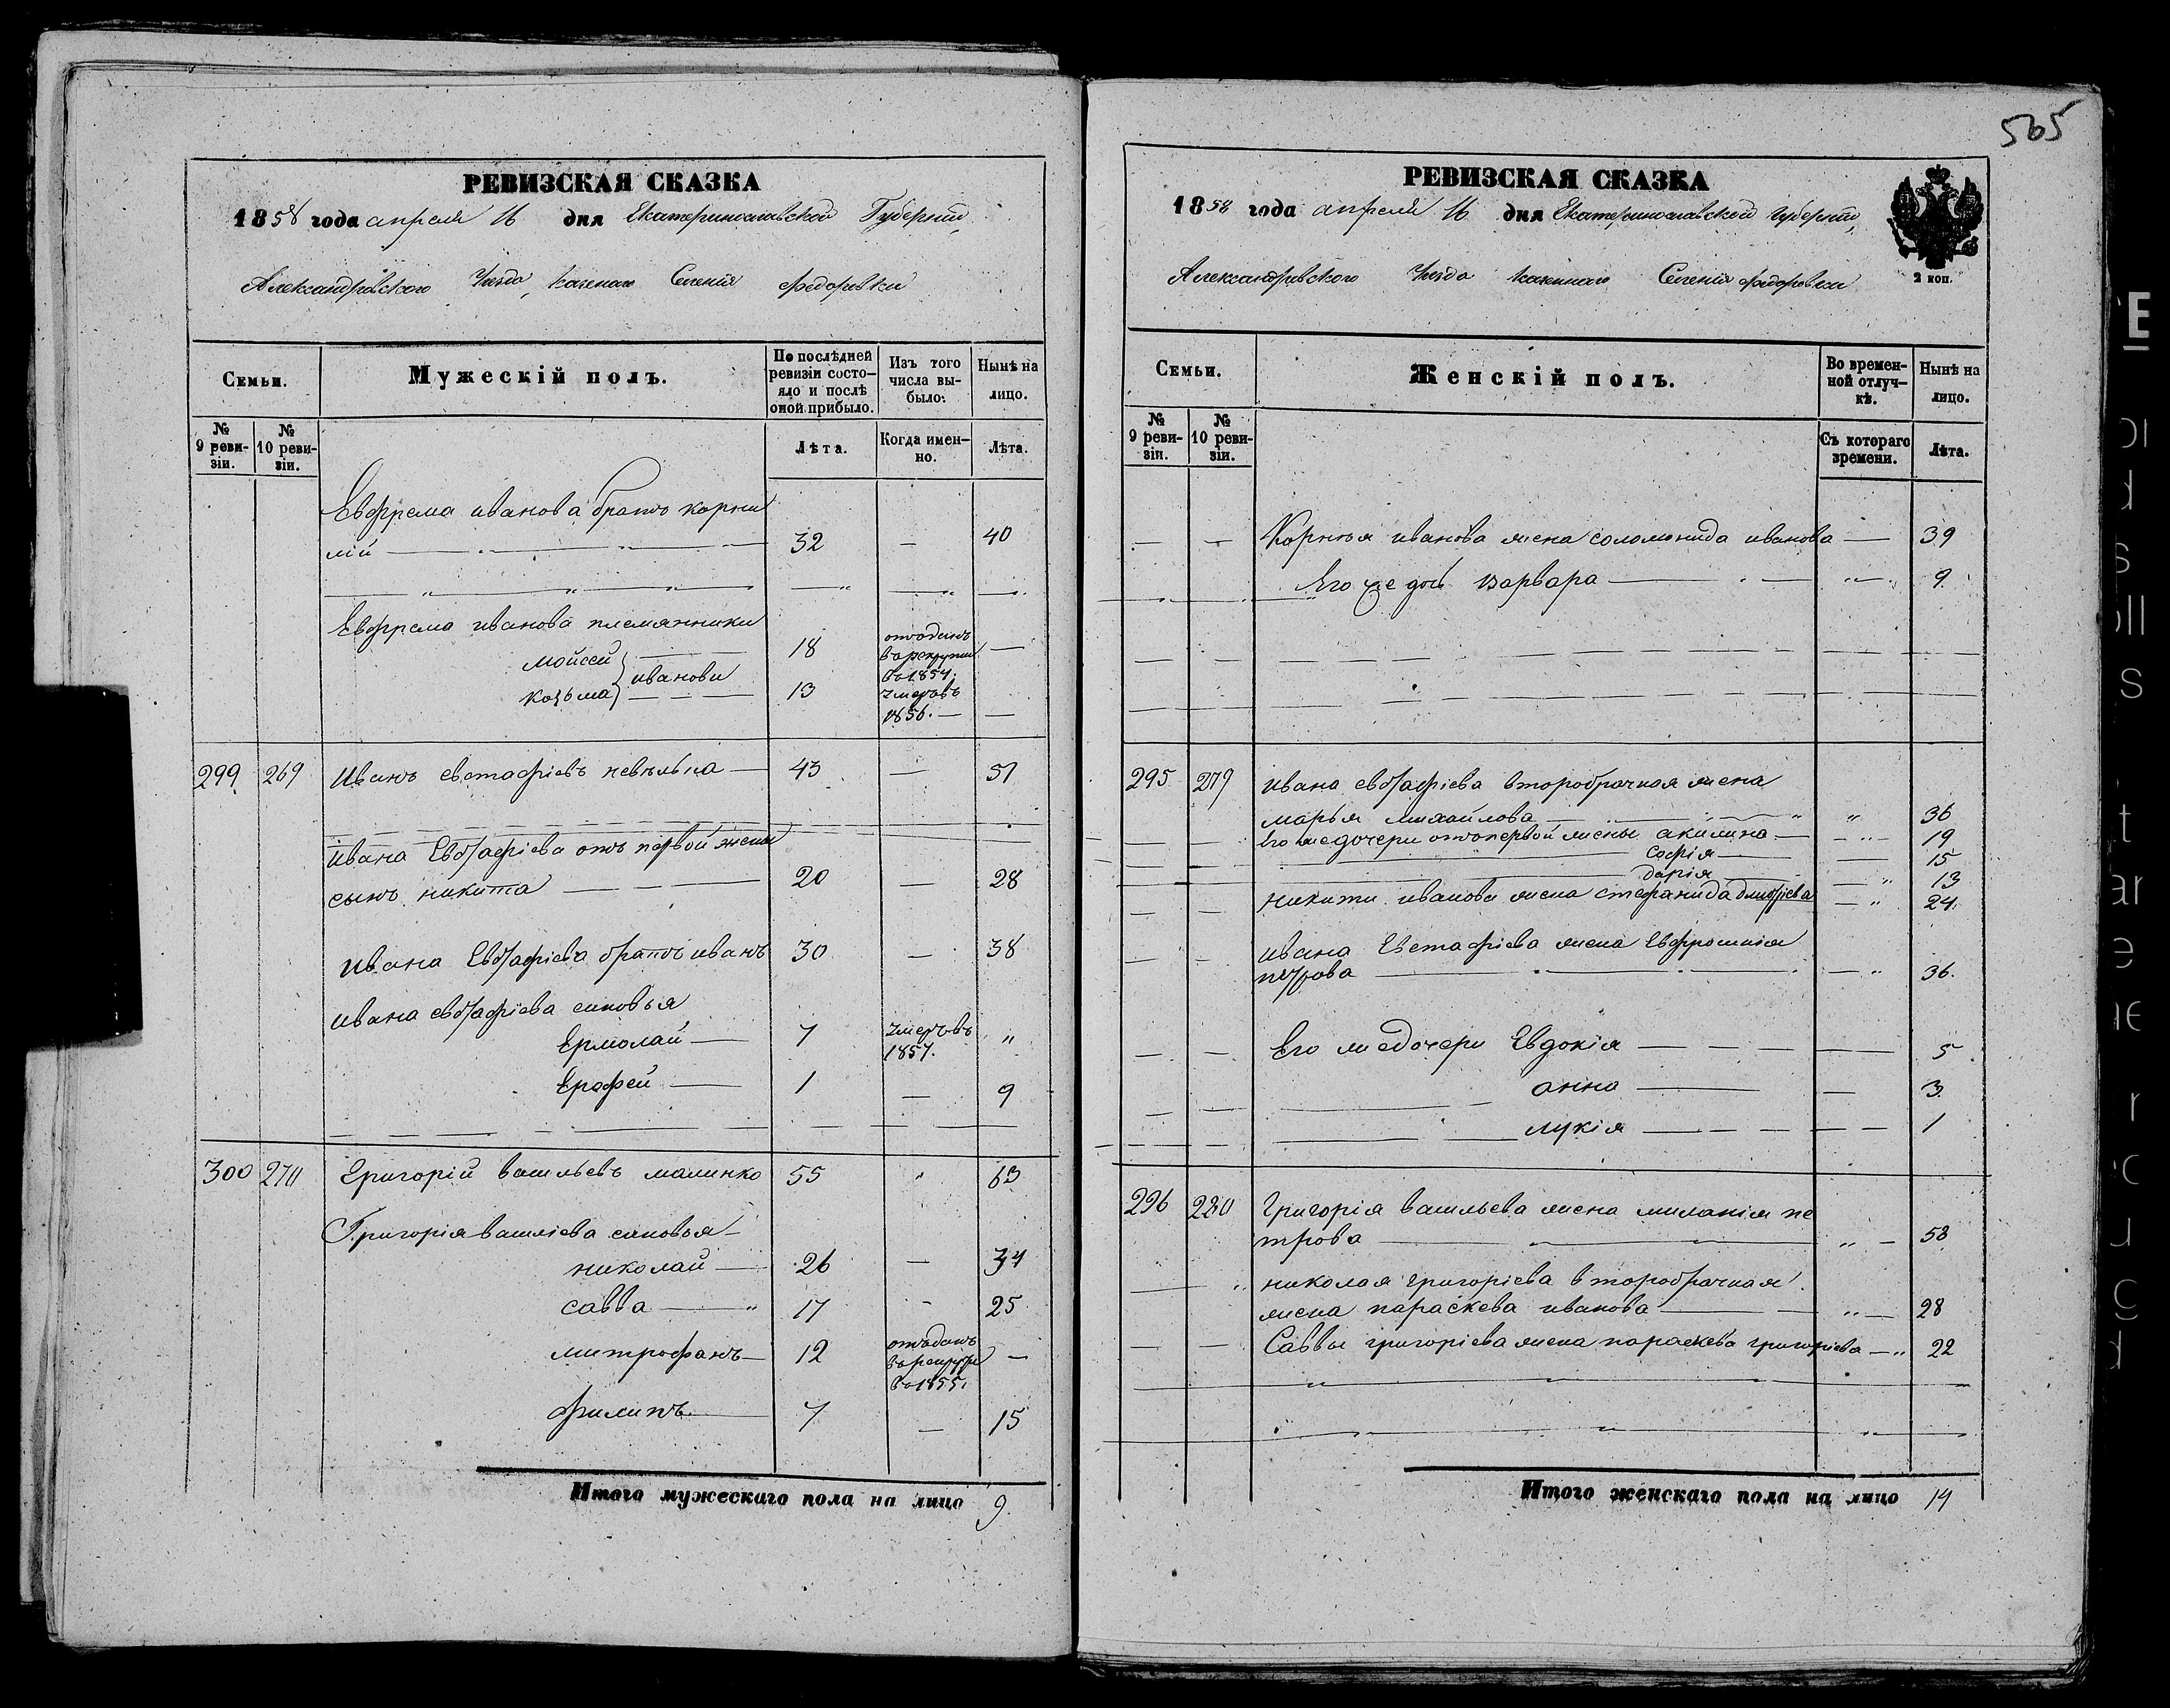 РЕВИЗСКАЯ СКАЗКА
1858 года апреля 16 дня Екатеринославской Губерніи,
Александровского Уезда, казеного Селенія федоровки
Семьи.
Мужескій полъ.
По послѣдней ревизіи состо-
яло и послѣ
оной прибыло.
Изъ того
числа вы-
было:
Нынѣ на
лицо.
№
9 реви-
зіи.
№
10 реви-
зіи.
Лѣта.
Когда имен-
но.
Лѣта.
Евфрема иванова братъ корни
лій 32 — 40
Евфрема иванова племянники
Мойсей 18 отъданъ
в рекруты
Козьма } иванови 13
умеръ въ
1856. —
299 269 Иванъ евстафіевъ 43 — 51
ивана Евстафіева отъ первой жены
сынъ никита 20 — 28
ивана Евстафіева братъ иванъ 30 — 38
ивана евстафіева синовья
Ермолай 7 умеръ въ
1857. "
Ерофей 1 — 9
300 270 Григорій васильевъ малинко 55 " 63
Григорія василіева синовья
николай 26 — 34
савва 17 - 25
митрофанъ 12 отъданъ
в рекруты
в 1855. —
филипъ 7 — 15
Итого мужескаго пола на лицо 9.
565
РЕВИЗСКАЯ СКАЗКА
1858 года апреля 16 дня Екатеринославской губерніи,
Александровского Уезда казенного Селенія федоровки
2 коп.
Семьи.
Женскій полъ.
Во времен-
ной отлуч-
кѣ.
Нынѣ на
лицо.
№
9 реви-
зіи.
№
10 реви-
зіи.
Съ котораго
времени.
Лѣта.
Корнѣя иванова жена соломонида иванова — 39
Его же дочь варвара 9
295 279 ивана евстафіева второбрачная жена
марья михайлова " 36
Его же дочери отъ первой жены акилина 19
софія 15
дарія 13
никити иванова жена стефанида дмитріева 24
ивана Евстафіева жена Евфросинія
петрова 36.
Его же дочери Евдокія 5
анна 3
лукія 1
296 220 Григорія васильева жена миланія пе
трова 58
николая григоріева второбрачная
жена параскева иванова 28
Саввы григоріева жена параскева григоріева 22
Итого женскаго пола на лицо 14